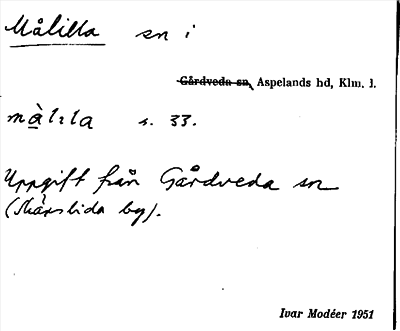 Målilla sn i
Gårdveda sn, Aspelands hd, Klm. l.
màlıla s. 33.
Uppgift från Gårdveda sn
(Skärslida by).
Ivar Modéer 1951